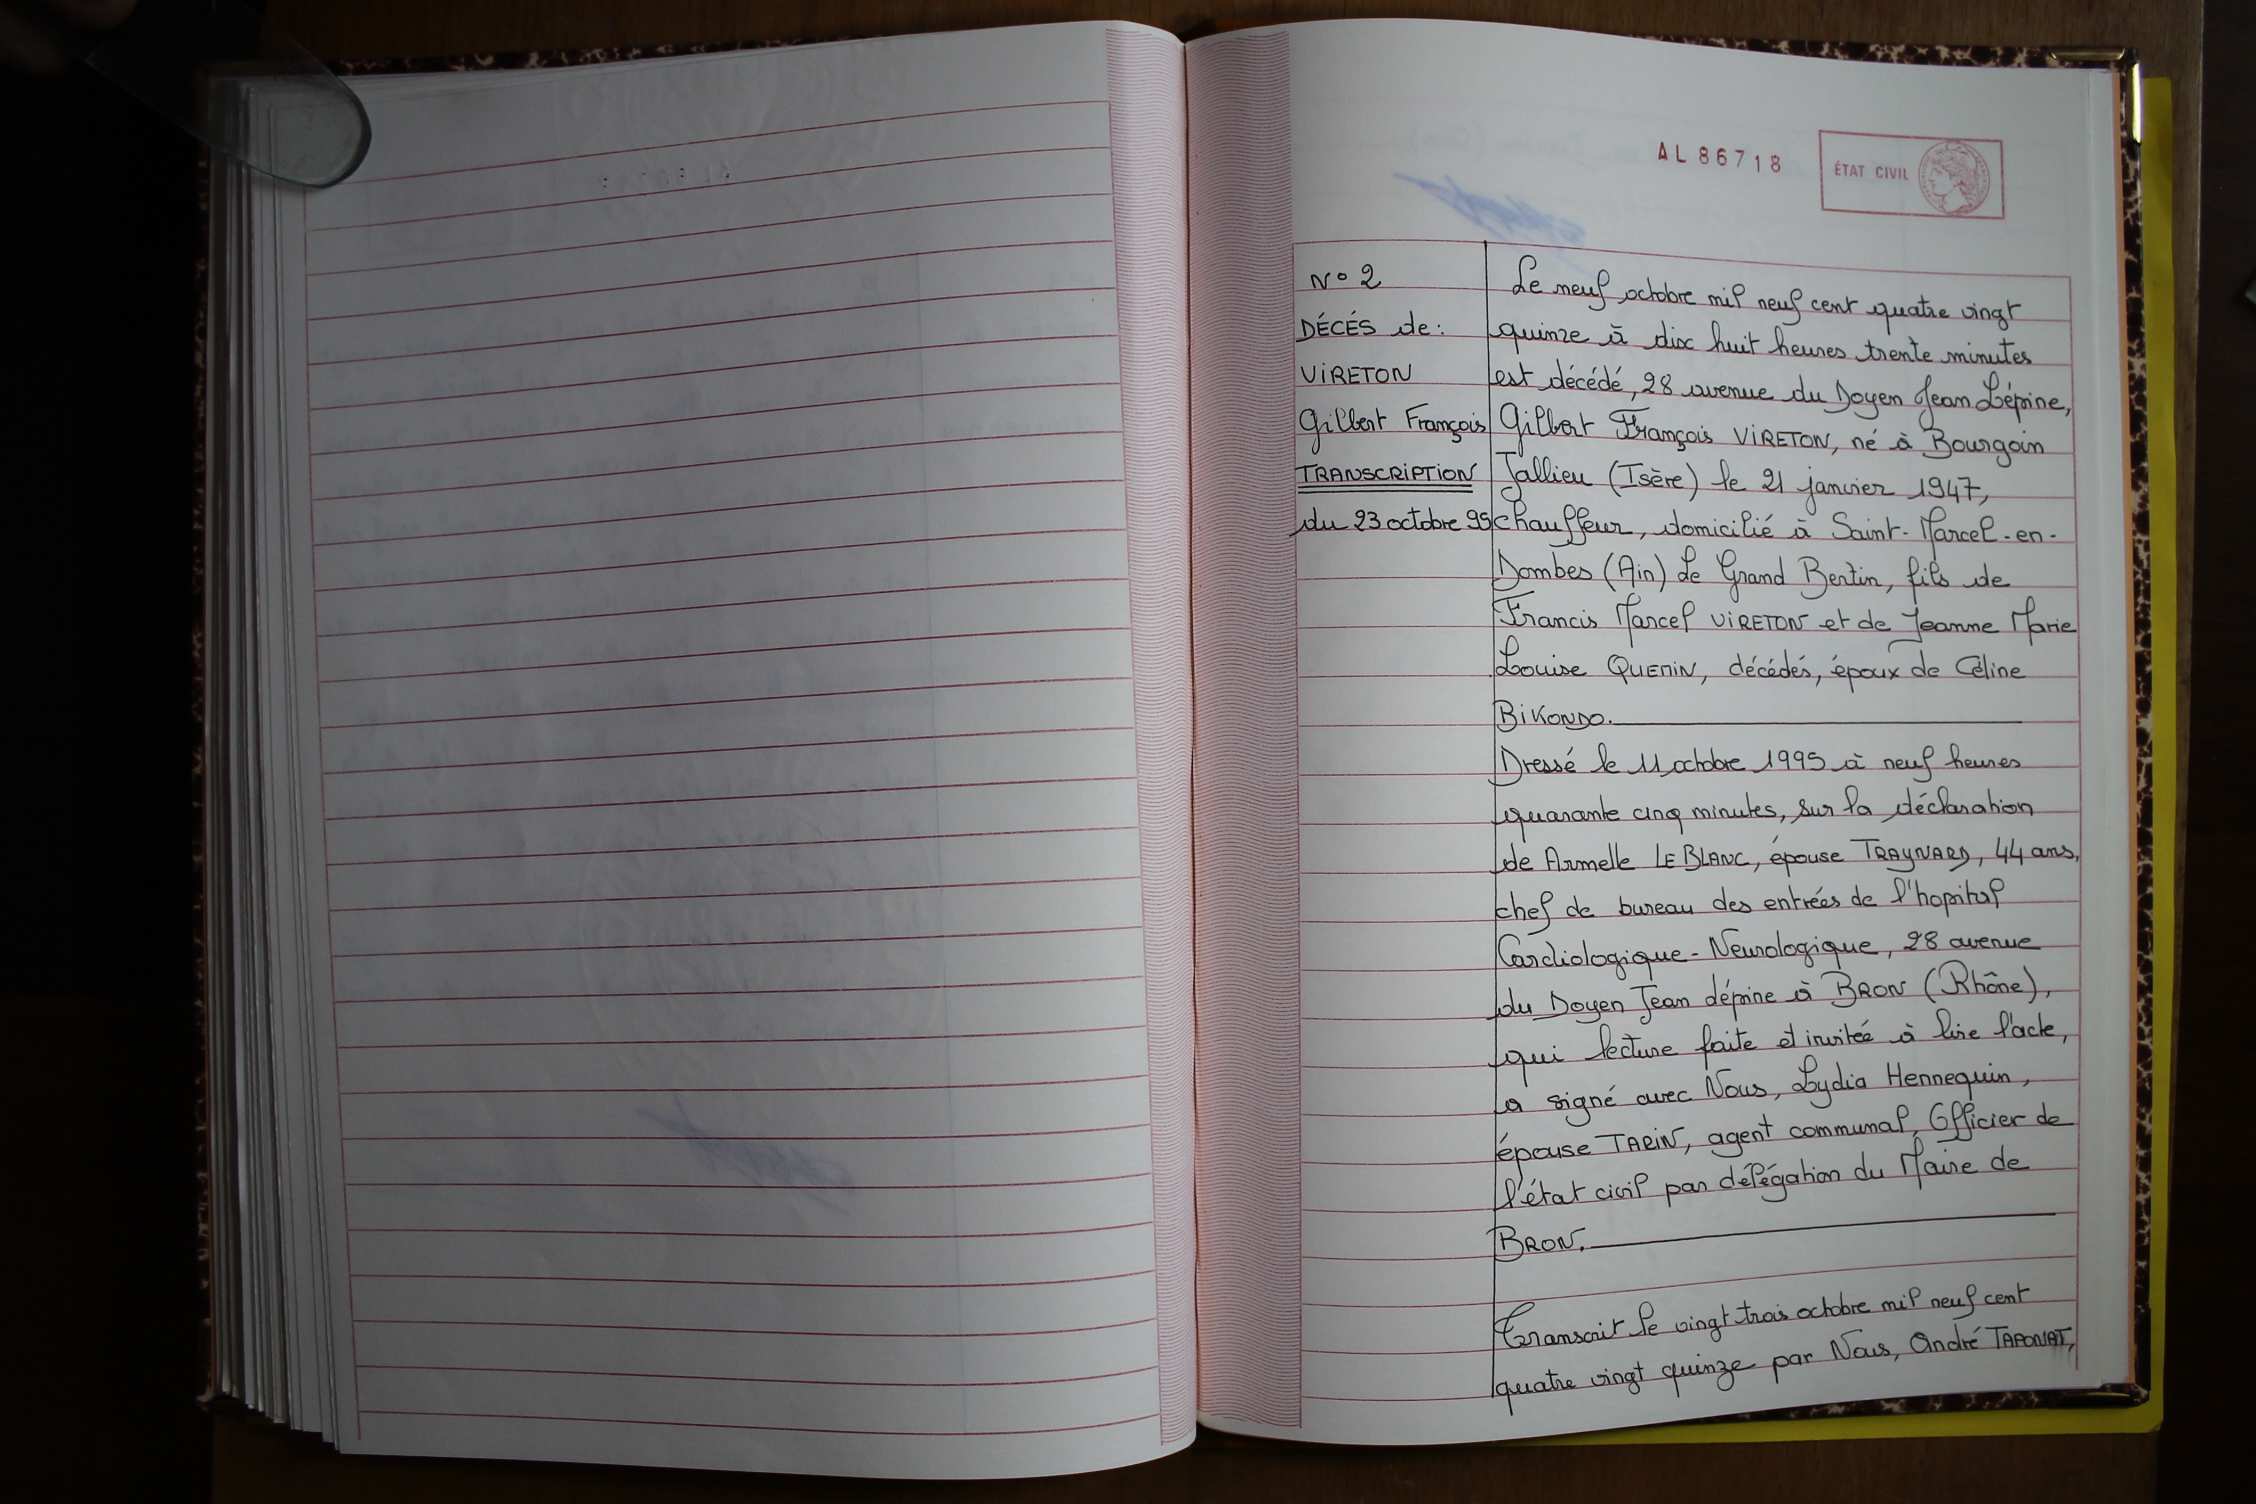 AL 86718
ÉTAT CIVIL
N° 2
DÉCÉS de:
VIRETON
Gilbert François
TRANSCRIPTION
du 23 octobre 95
Le neuf octobre mil neuf cent quatre vingt
quinze à dix huit heures trente minutes
est décédé, 28 avenue du Doyen Jean Lépine,
Gilbert François VIRETON, né à Bourgoin
Jallieu (Isère) le 21 janvier 1947,
chauffeur, domicilié à Saint-Marcel-en-
Dombes (Ain) Le Grand Bertin, fils de
Francis Marcel VIRETON et de Jeanne Marie
Louise QUEMIN, décédés, époux de Céline
BIKONDO.
Dressé le 11 octobre 1995 à neuf heures
quarante cinq minutes, sur la déclaration
de Armelle LE BLANC, épouse TRAYNARD, 44 ans,
chef de bureau des entrées de l'hopital
Cardiologique-Neurologique, 28 avenue
du Doyen Jean Lépine à BRON (Rhône),
qui lecture faite et invitée à lire l'acte,
a signé avec Nous, Lydia Hennequin,
épouse TARIN, agent communal, Officier de
l'état civil par délégation du Maire de
BRON.
Transcrit le vingt trois octobre mil neuf cent
quatre vingt quinze par Nous, André TAPONAT,